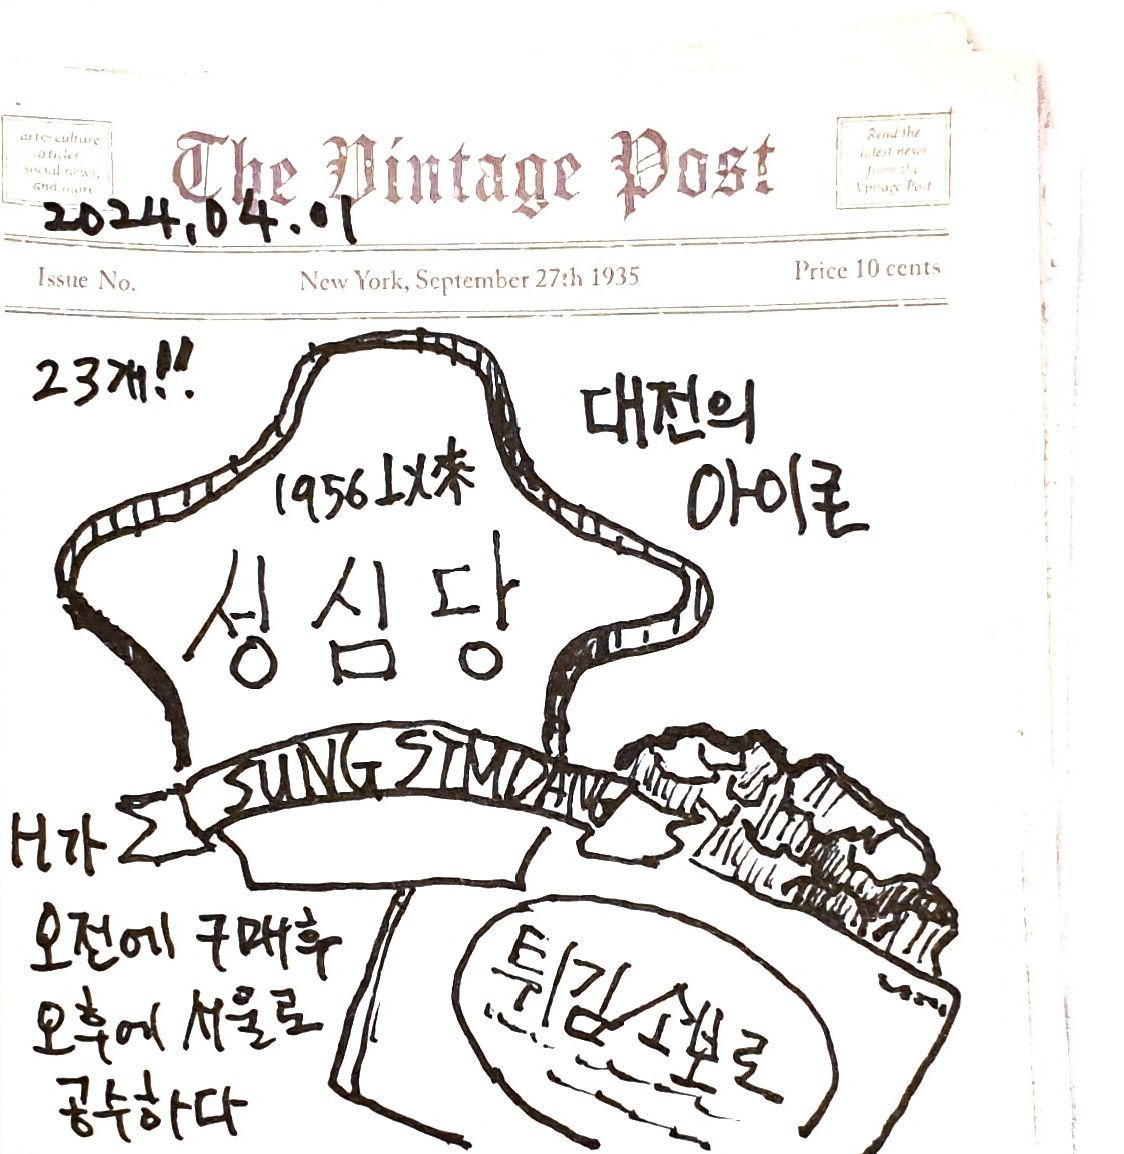 arts-culture
articles
social news,
and more
The Vintage Post
Read the
latest news
from the
Vintage Post
2024.04.01
Issue No.
New York, September 27th 1935
Price 10 cents
23개!!
대전의
아이콘
1956以來
성심당
SUNG SIMDANG
H가
오전에 구매후
오후에 서울로
공수하다
튀김소보로